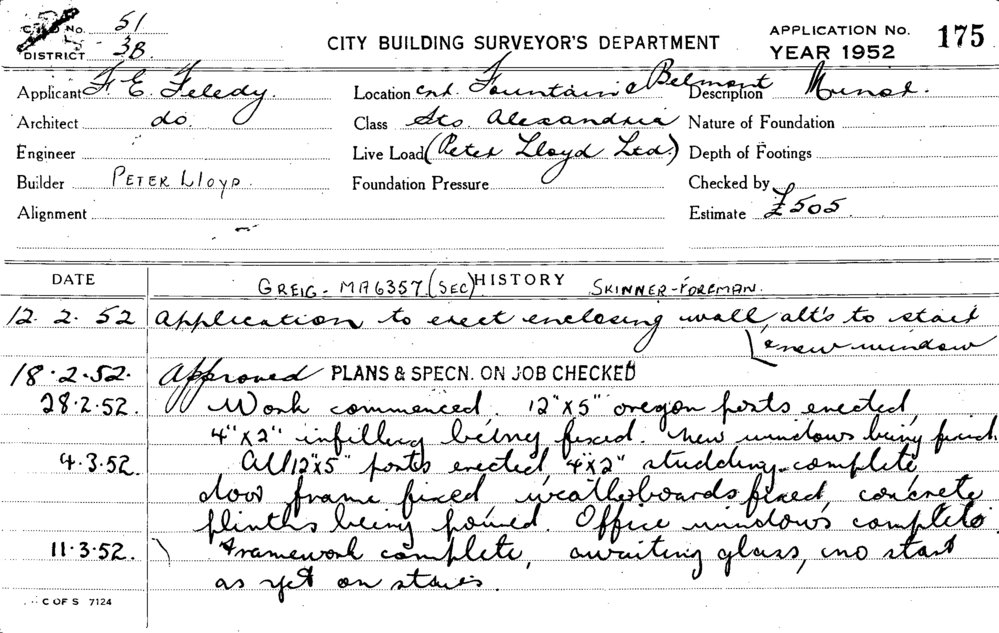 No. 51
DISTRICT 3B.
CITY BUILDING SURVEYOR'S DEPARTMENT
APPLICATION No. 175
YEAR 1952
Applicant F. E. Feledy. Location Cnr. Fountain & Belmont Description Minor.
Architect do. Class Sts Alexandria Nature of Foundation
Engineer Live Load (Peter Lloyd Ltd.) Depth of Footings
Builder PETER LLOYD. Foundation Pressure Checked by
Alignment Estimate £505.
DATE HISTORY
GREIG - MA6357 (SEC) SKINNER - FOREMAN.
12. 2. 52 Application to erect enclosing wall, alt's to stair
& new window
18.2.52. Approved PLANS & SPECN. ON JOB CHECKED
28.2.52. Work commenced. 12"x5" oregon posts erected,
4"x2" infilling being fixed. New windows being fixed.
4.3.52. All 12"x5" posts erected 4"x2" studding complete
door frame fixed weatherboards fixed, concrete
plinths being poured. Office windows complete.
11.3.52. Framework complete, awaiting glass, no start
as yet on stairs.
C OF S 7124